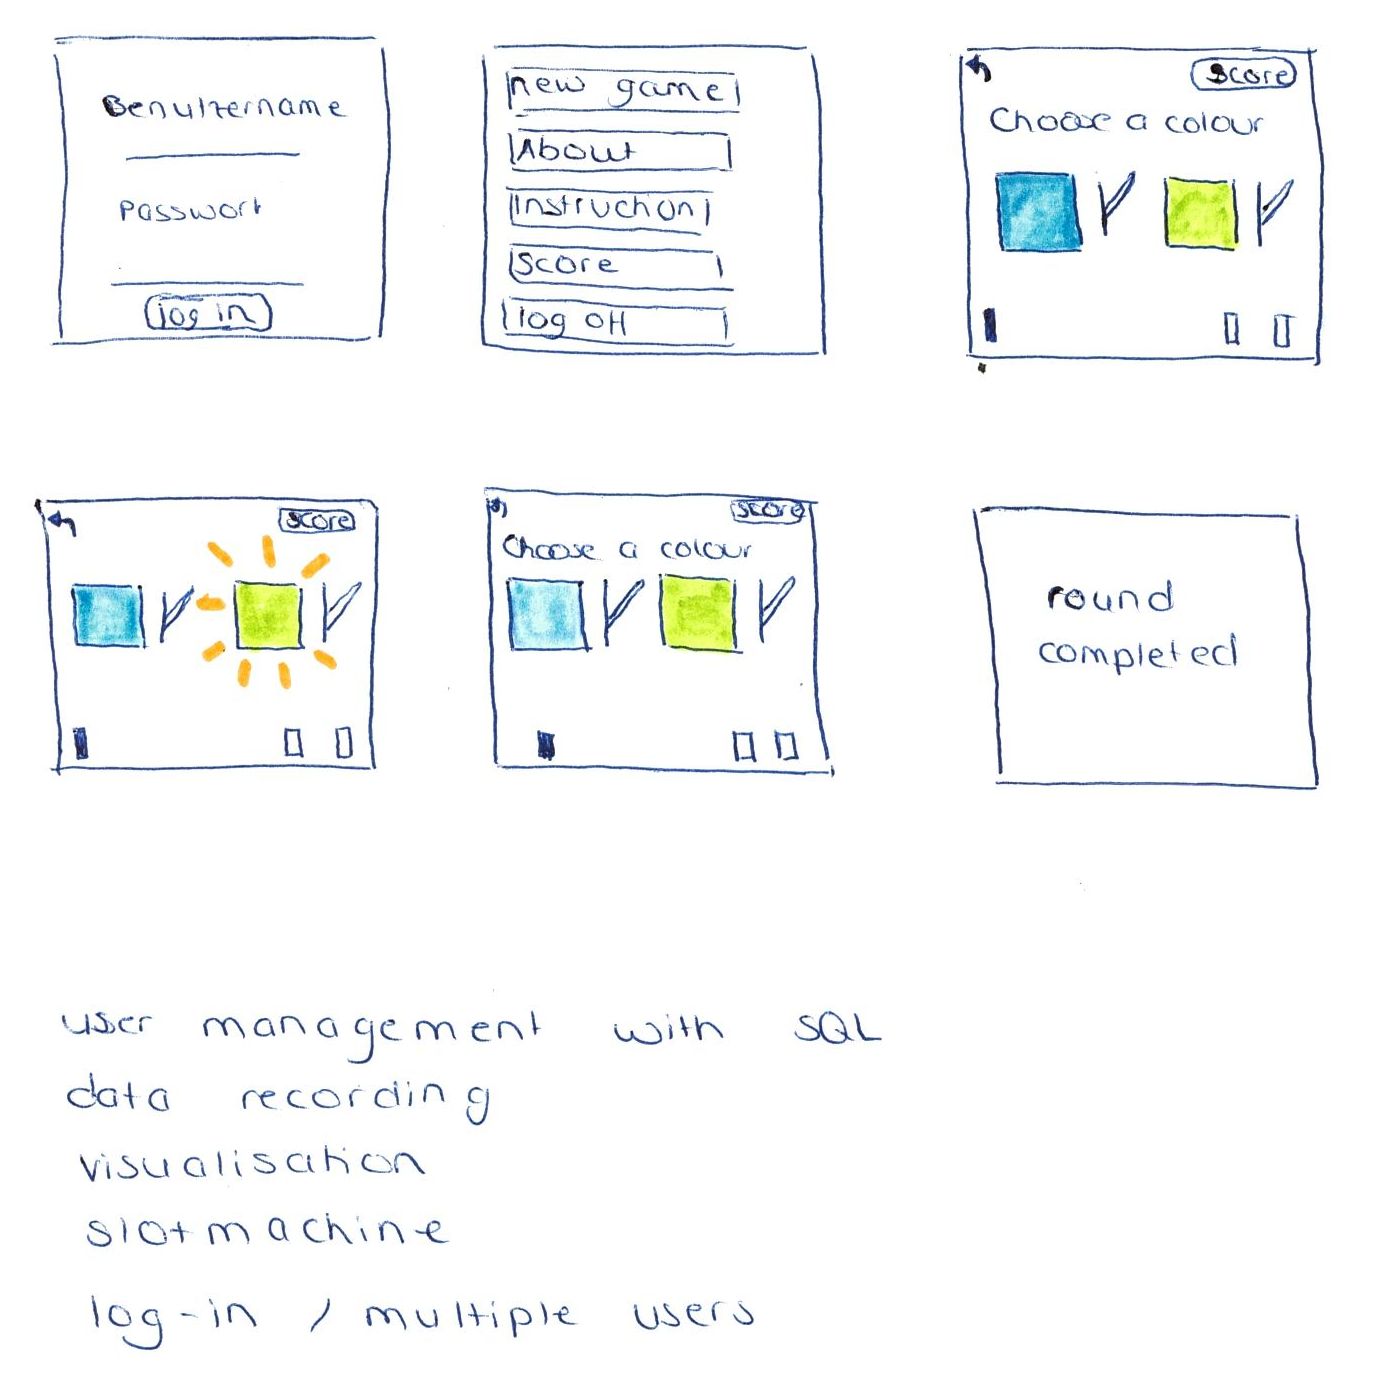 Benutzername
Passwort
log in
new game
About
Instruction
Score
log off
Score
Choose a colour
score
score
Choose a colour
round
completed
user management with SQL
data recording
visualisation
slotmachine
log-in / multiple users